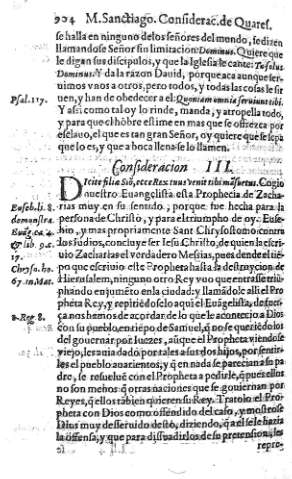 904 M. Sanctiago. Considerac. de Quares.
se halla en ninguno de los señores del mundo, se dizen
llamandose Señor sin limitacion Dominus. Quiere que
le digan sus discipulos, y que la Iglesia le cante: Tu solus
Dominus. Y da la razon Dauid, porque aca aunque ser-
uimos vnos a otros, pero todos, y todas las cosas le sir
Psal. 117. uen, y han de obedecer a el: Quoniam omnia seruiunt tibi.
Y assi como tal oy lo rinde, manda, y atropella todo,
y para que el hõbre estime en mas que se ofrezca por
esclauo, el que es tan gran Señor, oy quiere que se sepa
que lo es, y que a boca llena se lo llamen.
Consideracion III.
DIcite filiæ Siõ, ecce Rex tuus venit tibi mãsuetus. Cogio
nuestro Euangelista esta Prophecia de Zacha-
Euseb. li. 8. rias muy en su sentido, porque fue hecha para la
demonstra. persona de Christo, y para el triumpho de oy. Euse-
Euãg. ca. 4. bio, y mas propriamente Sant Chrysostomo contra
& lib. 9. c. los Iudios, concluye ser Iesu Christo, de quien la escri
17. uio Zacharias el verdadero Messias, pues dende el tiẽ
Chryso. ho. po que escriuio este Propheta hasta la destruycion de
67. in Mat. Hierusalem, ninguno otro Rey vuo que entrasse triũ-
phando en jumẽto en la ciudad: y llamãdole assi el Pro
pheta Rey, y repitiẽdoselo aqui el Euãgelista, de fuer-
1. Reg. 8. ça nos hemos de acordar de lo que le acontecio a Dios
con su pueblo, en tiẽpo de Samuel, q̃ no se queriẽdo los
del gouernar por Iuezes, aũque el Propheta viendose
viejo, les auia dado por tales a sus dos hijos, por sentir
les el pueblo auarientos, y q̃ en nada se parecian a su pa
dre, se resueluẽ con el Propheta a pedirle, q̃ pues ellos
no son menos q̃ otras naciones que se gouiernan por
Reyes, q̃ ellos tãbien quieren su Rey. Trato lo el Pro
pheta con Dios como offendido del caso, y mostrose
Dius muy desseruido desto, diziendo, q̃ a el se le hazia
la offensa, y que para dissuadirlos de su pretension, les
repre-